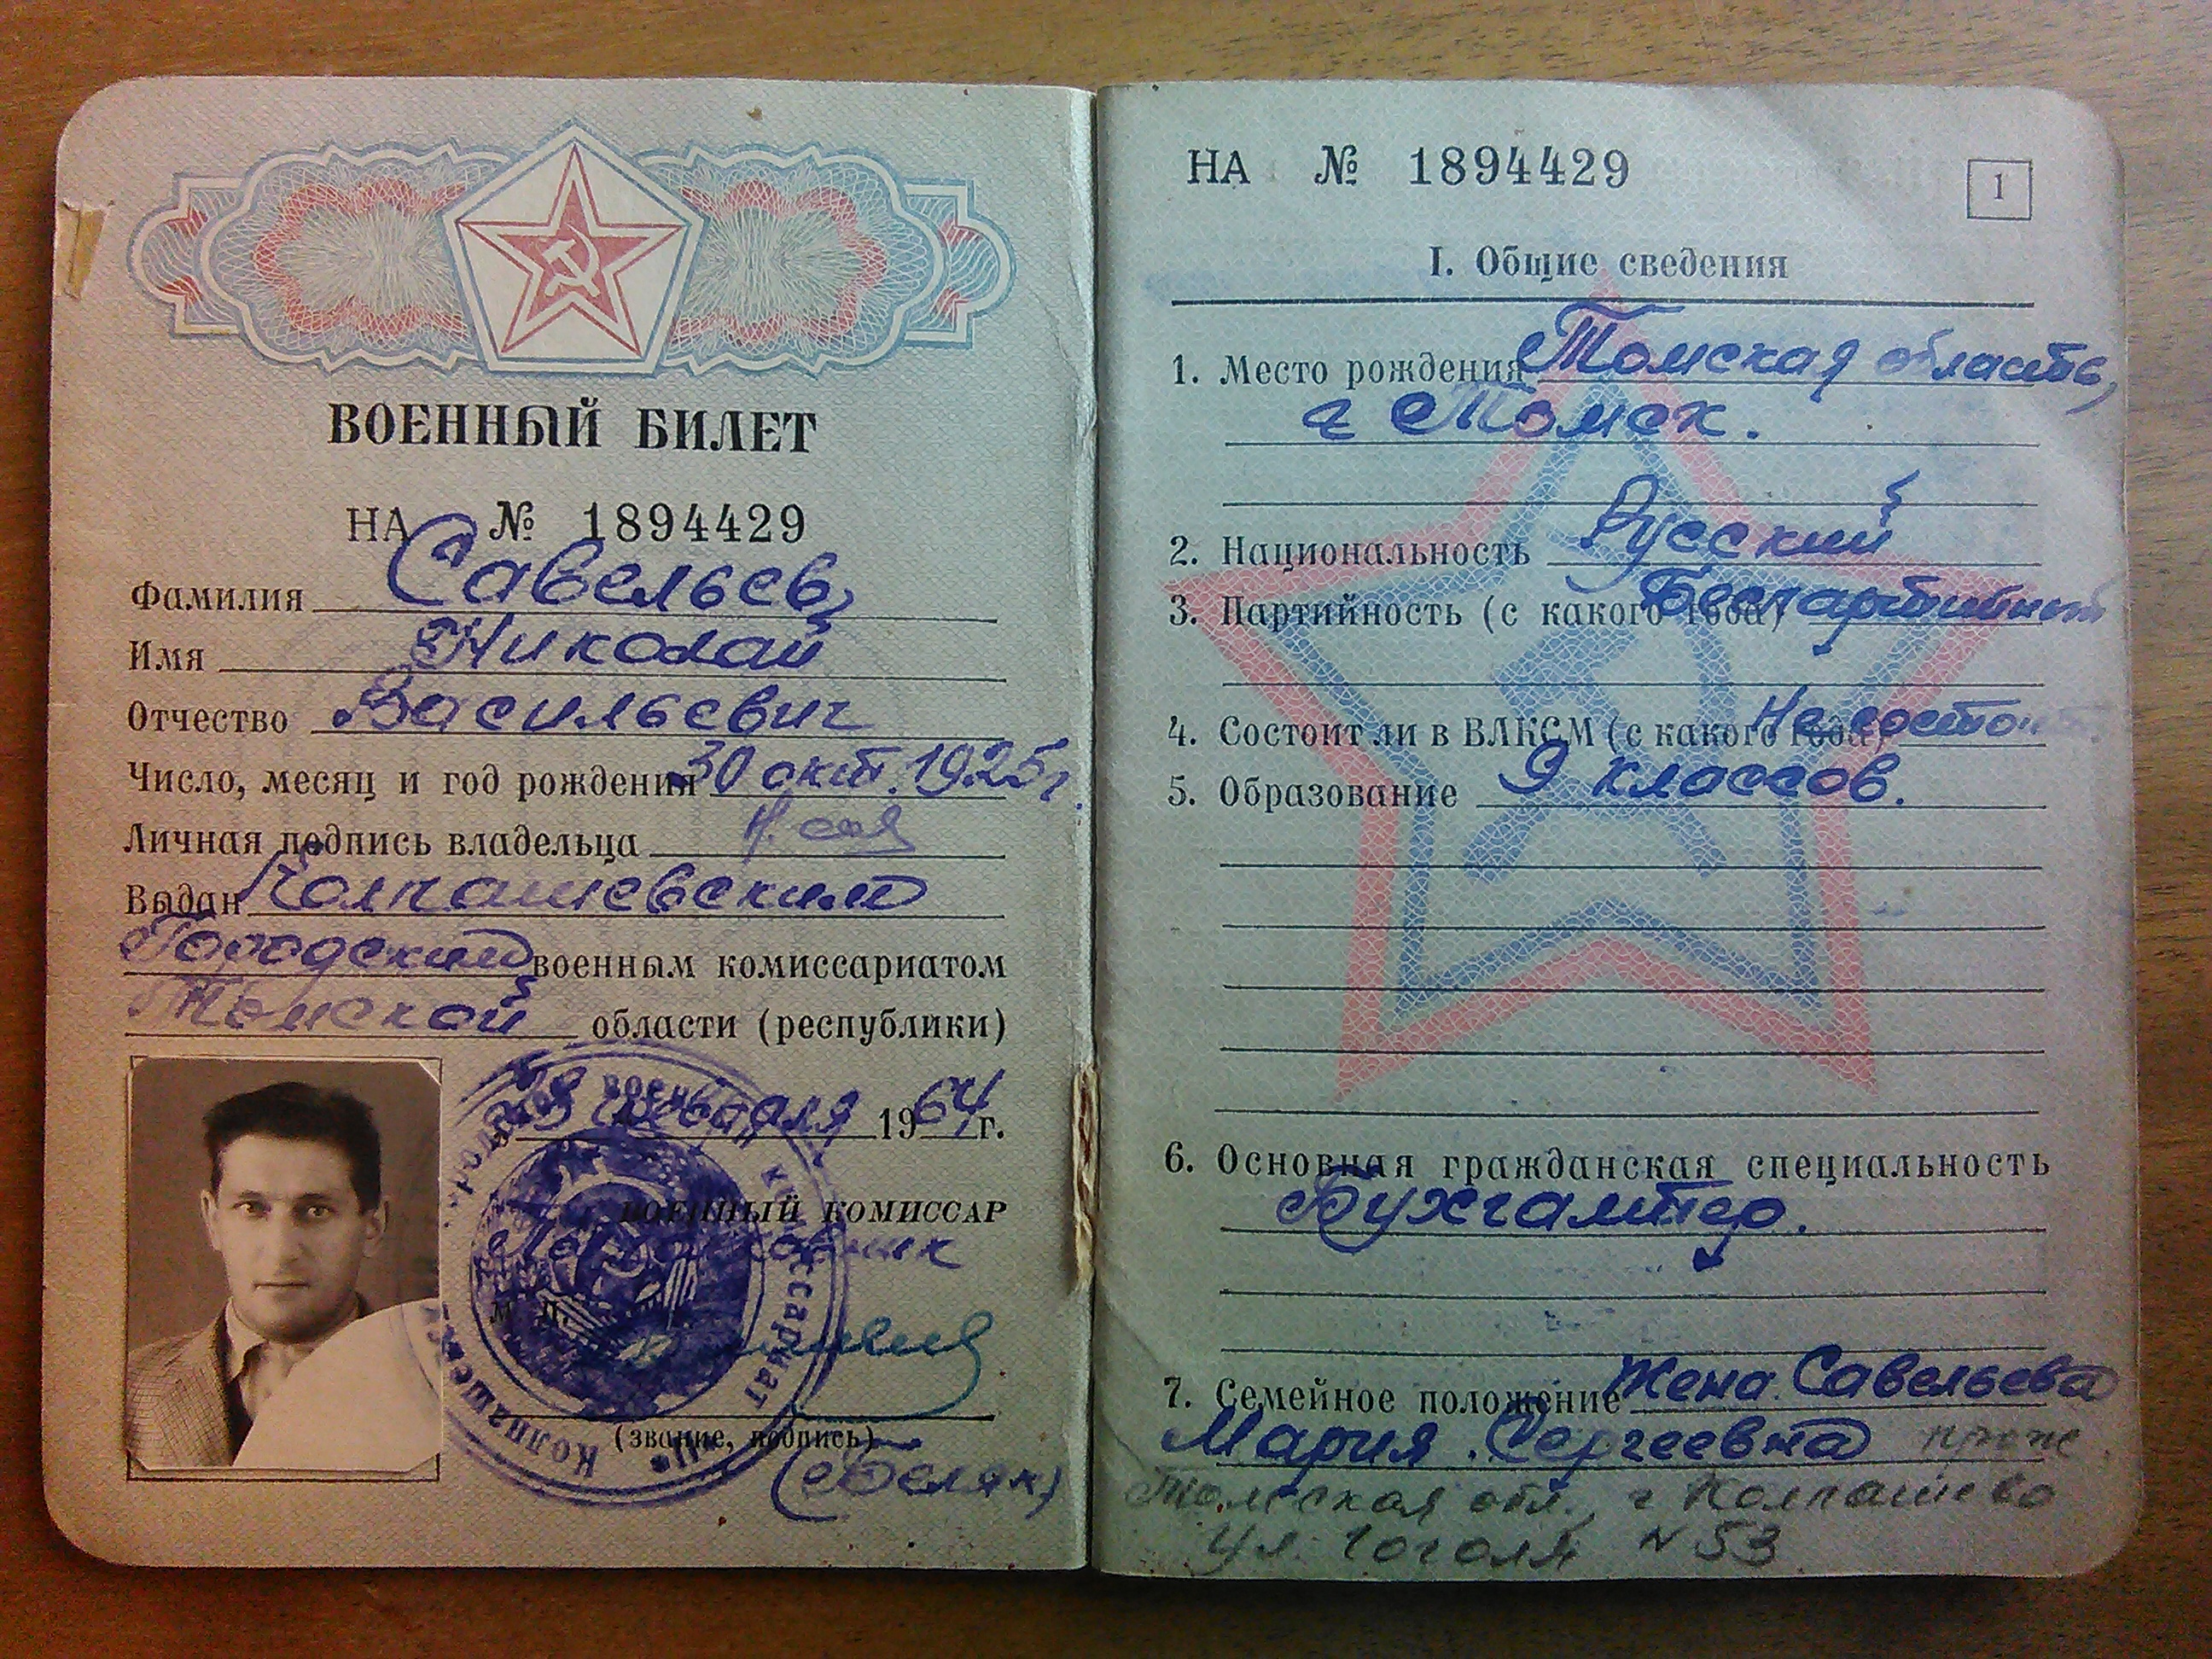 ВОЕННЫЙ БИЛЕТ
НА № 1894429
Фамилия Савельев,
Имя Николай
Отчество Васильевич
Число, месяц и год рождения 30 окт. 1925 г.
Личная подпись владельца Н. Сав
Выдан Колпашевским
Городским военным комиссариатом
Томской области (республики)
февраля 1964 г.
ВОЕННЫЙ КОМИССАР
Подполковник
М. П.
(звание, подпись)
(Беляк)
военный комиссариат
Колпашев
НА № 1894429
1
I. Общие сведения
1. Место рождения Томская область,
г Томск.
2. Национальность Русский
3. Партийность (с какого года) Беспартийный
4. Состоит ли в ВЛКСМ (с какого года) Не состоит
5. Образование 9 классов.
6. Основная гражданская специальность
Бухгалтер.
7. Семейное положение Жена. Савельева
Мария. Сергеевна прож.
Томская обл., г Колпашево
ул. Гоголя N 53